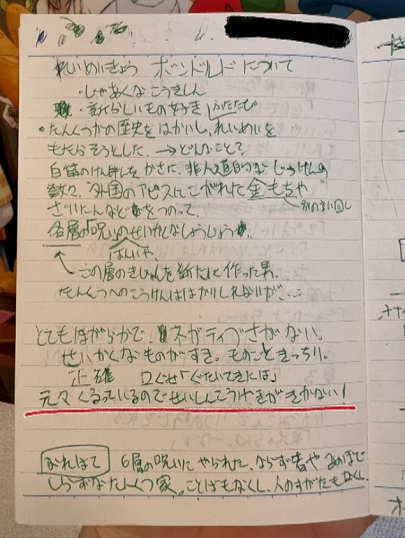 れいめいきょう ボンドルドについて
・じゃあくなこうきしん
・新らしいもの好き ふたたび
・たんくつかの歴史をはかいし、れいめいを
もたらそうとした。→どんなこと?
白笛のけんげんをかさに、非人道的なじっけんの
数々、外国のアビスにこがれた金もちや
ざいだんなどをつのって、
各層の呪いのせいかくなしょうじょう
はんいや
この層のきじゅんを新たに作った男。
たんくつへのこうけんははかりしれないが…
とてもほがらかで ネガティブさがない。
せいかくなものがすき。ものごときっちり。
正確 口ぐせ「ぐたいてきには」
元々くるっているのでせいしんこうげきがきかない!
なれはて 6層の呪いにやられた、ならず者やあめほど
しらずなたんくつ家。ことばもなくし、人のすがたもなくし